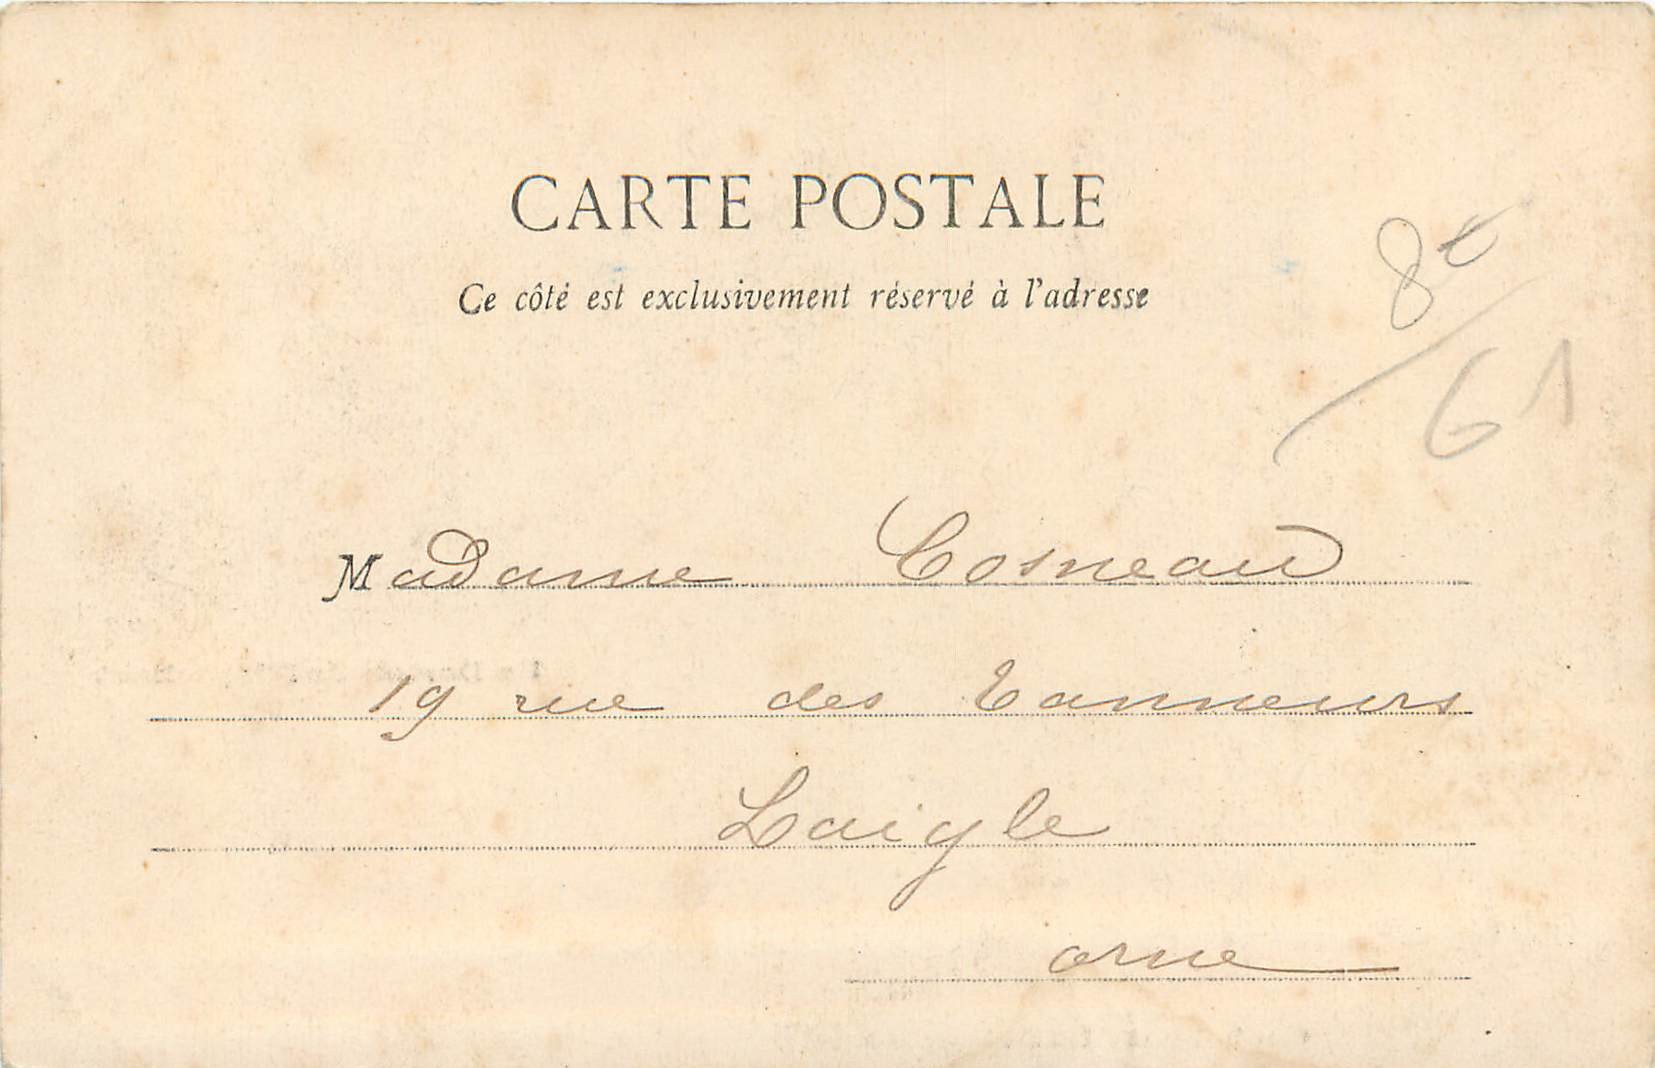 CARTE POSTALE
Ce côté est exclusivement réservé à l'adresse
8€
61
Madame Cosneau
19 rue des Tanneurs
Laigle
orne